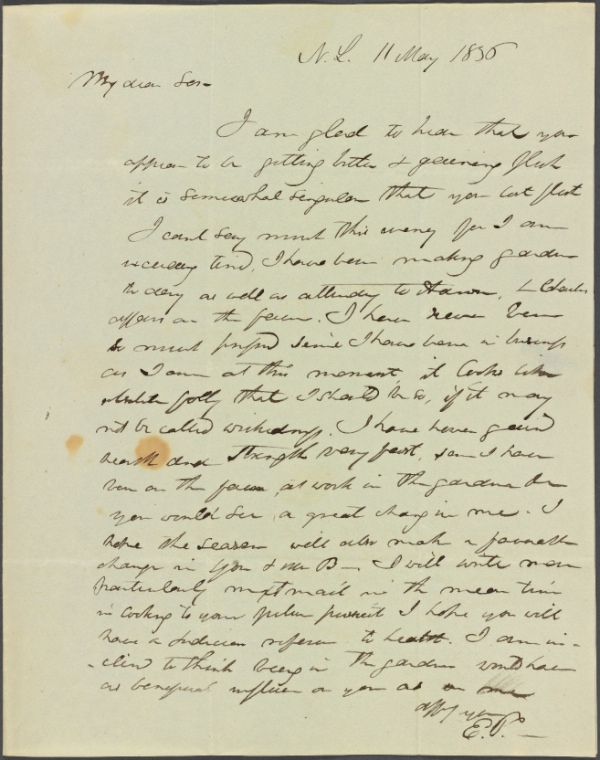 N. L. 11 May 1836
My dear Sir
I am glad to hear that you
appear to be getting better & gaining flesh
it is somewhat singular that you lost flesh
I cant say much this eveng for I am
exceedg tired, I have been making garden
the day as well as attendg to
affairs on the farm. I have never been
so much since I have been in
as I am at this moment, it looks like
absolute folly that I should be so, if it may
not be called wickedness. I have never gaind
health and strength very fast, since I have
been on the farm, at work in the garden
you would see a great change in me. I
hope the season will also make a favorable
change in you & Mr B—. I will write more
particularly next mail in the mean time
in looking to your pursuit I hope you will
have a reference to health. I am in-
-clined to think being in the garden would have
as beneficial influence on you as on me
E. P.